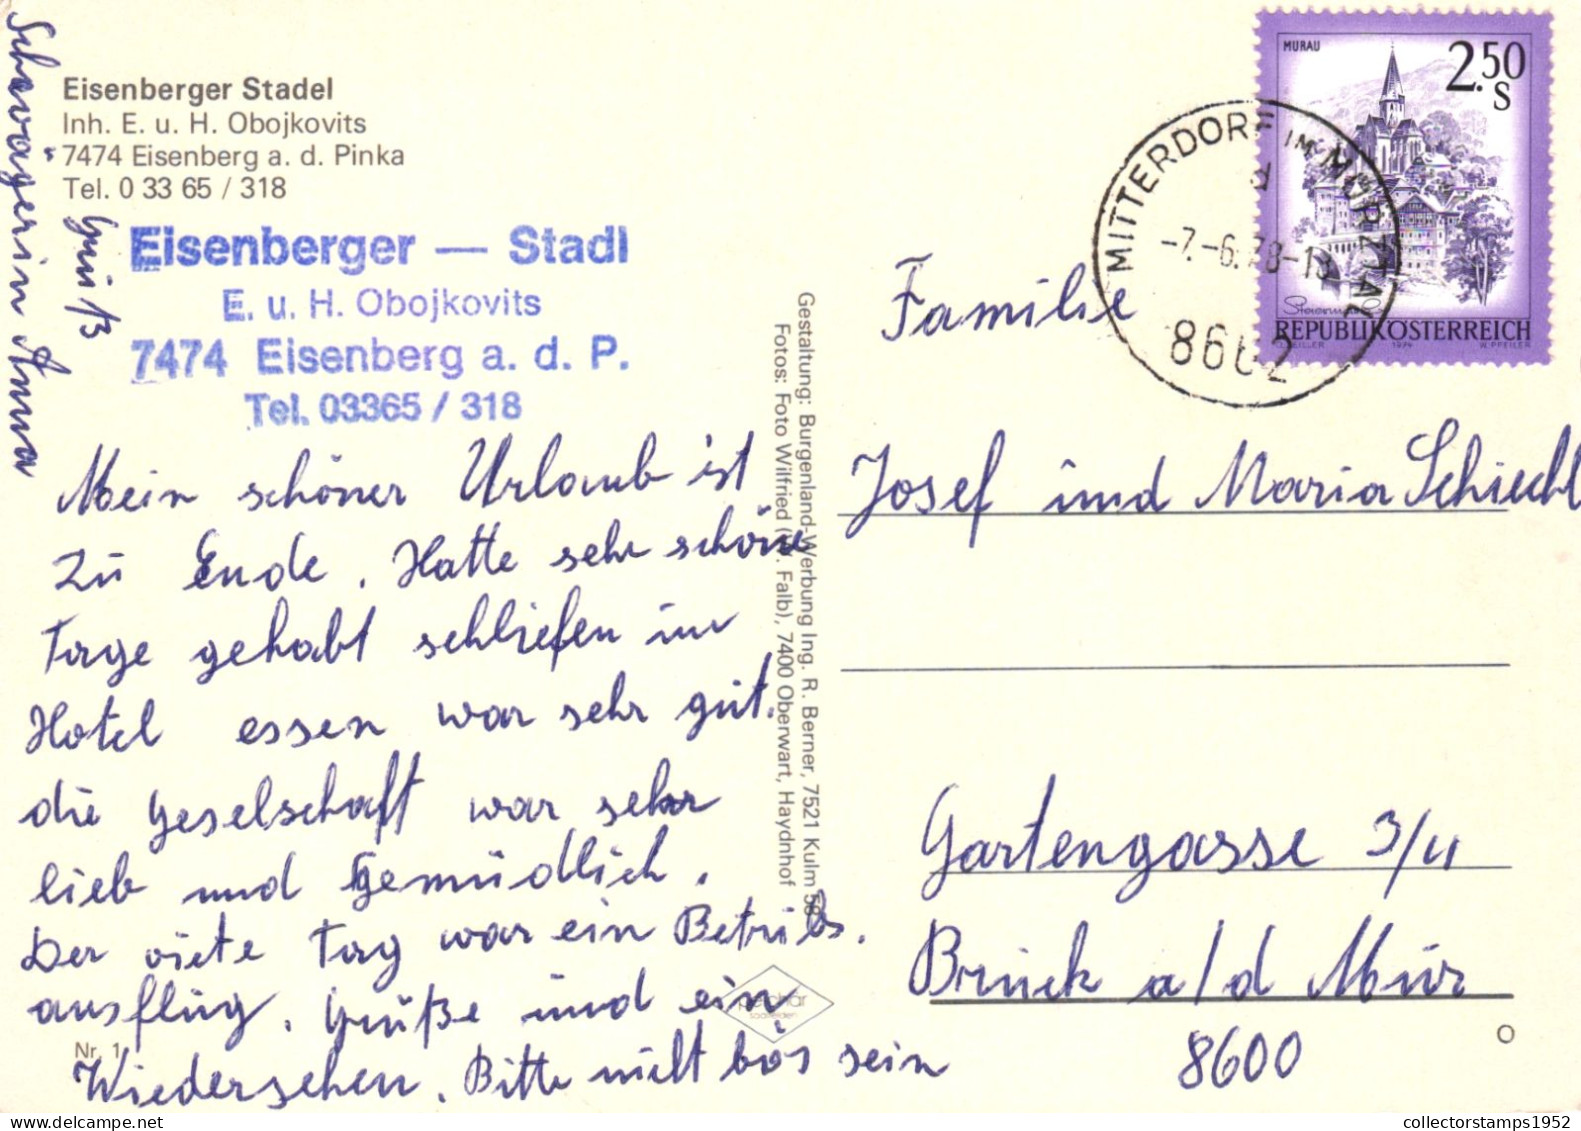 Eisenberger Stadel
Inh. E. u. H. Obojkovits
7474 Eisenberg a. d. Pinka
Tel. 0 33 65 / 318
Eisenberger — Stadl
E. u. H. Obojkovits
7474 Eisenberg a. d. P.
Tel. 03365 / 318
Mein schöner Urlaub ist
zu Ende. Hatte sehr schöne
Tage gehabt schliefen im
Hotel essen war sehr gut.
die Geselschaft war sehr
lieb und Gemüdlich.
Der viete Tag war ein Betribs.
ausflug. Grüße und ein
Wiedersehen. Bitte nicht bös sein
Schwägerin Anna
Nr. 1
Gestaltung: Burgenland-Werbung Ing. R. Berner, 7521 Kulm 58
Fotos: Foto Wilfried Falb), 7400 Oberwart, Haydnhof
MURAU
2.50
S
REPUBLIK ÖSTERREICH
1974 W. PFEILER
MITTERDORF IM MÜRZTAL
d
-7.-6.78-13
8662
Familie
Josef und Maria Schiechl
Gartengasse 3/4
Bruck a/d Mur
8600
O
collectorstamps1952